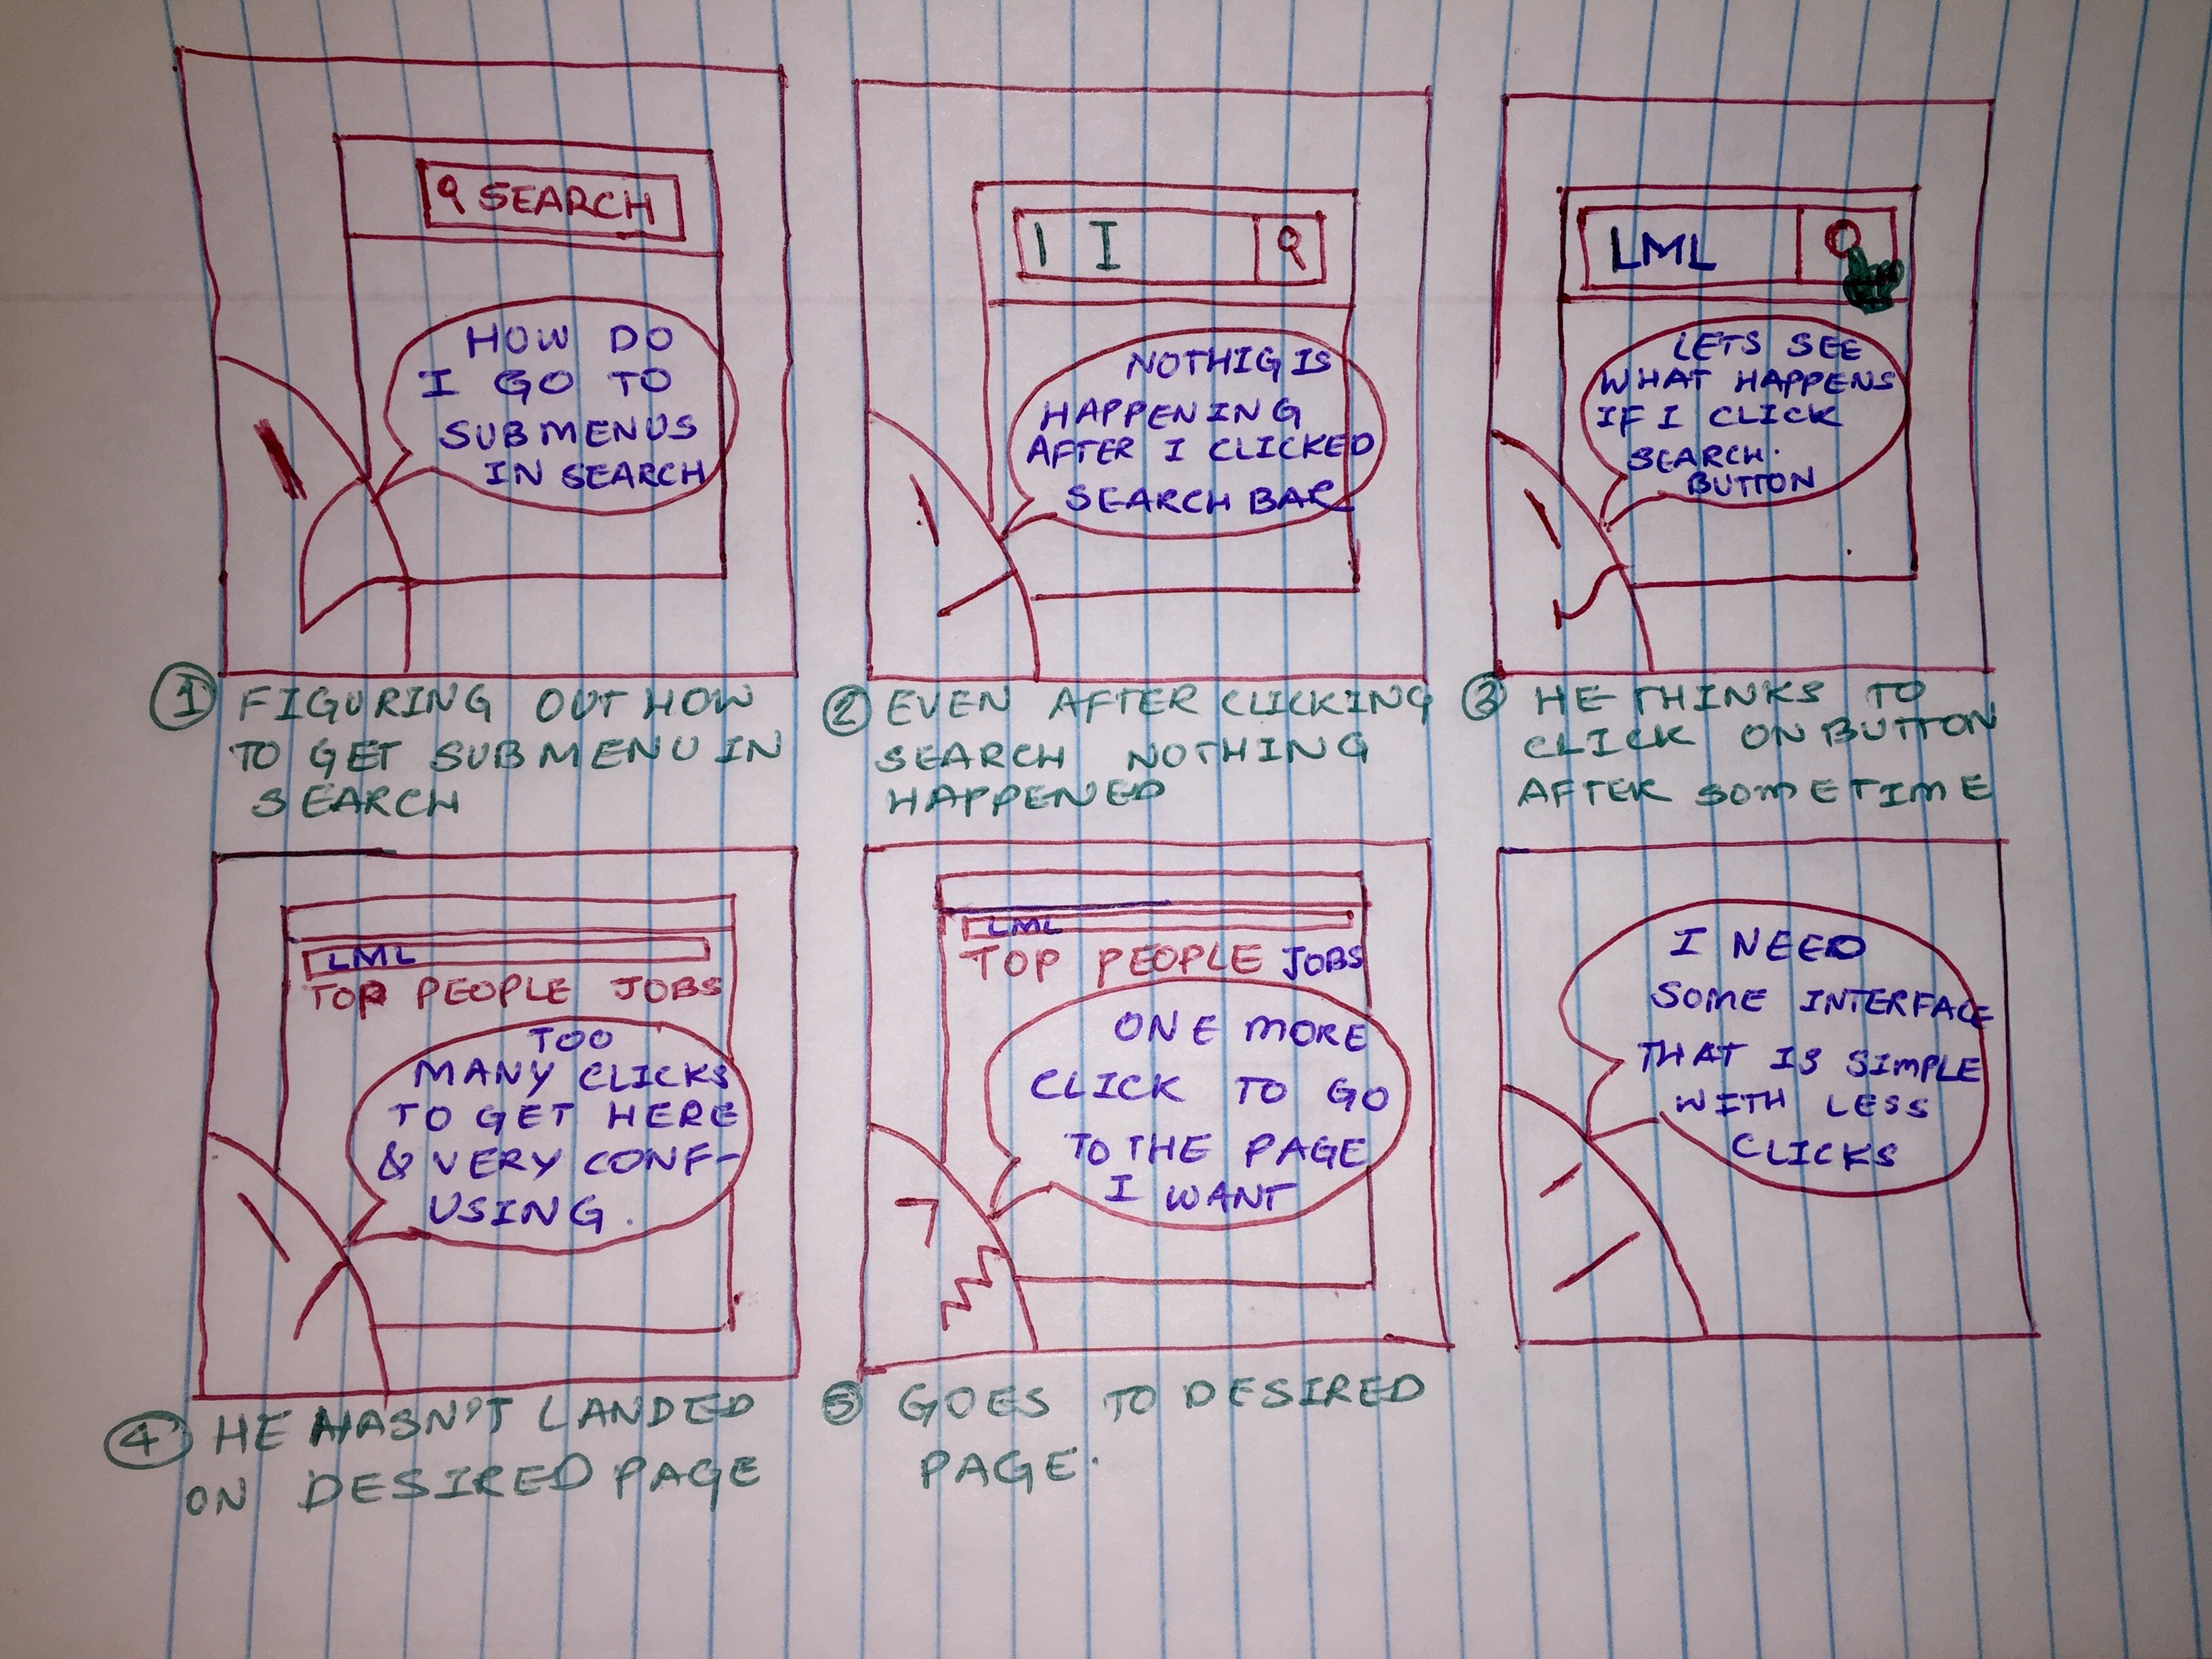 SEARCH
HOW DO
I GO TO
SUBMENUS
IN SEARCH
1 FIGURING OUT HOW
TO GET SUBMENU IN
SEARCH
I
NOTHIG IS
HAPPENING
AFTER I CLICKED
SEARCH BAR
2 EVEN AFTER CLICKING
SEARCH NOTHING
HAPPENED
LML
LETS SEE
WHAT HAPPENS
IF I CLICK
SEARCH.
BUTTON
3 HE THINKS TO
CLICK ON BUTTON
AFTER SOMETIME
LML
TOP PEOPLE JOBS
TOO
MANY CLICKS
TO GET HERE
& VERY CONF-
USING.
4 HE HASN'T LANDED
ON DESIRED PAGE
LML
TOP PEOPLE JOBS
ONE MORE
CLICK TO GO
TO THE PAGE
I WANT
5 GOES TO DESIRED
PAGE.
I NEED
SOME INTERFACE
THAT IS SIMPLE
WITH LESS
CLICKS